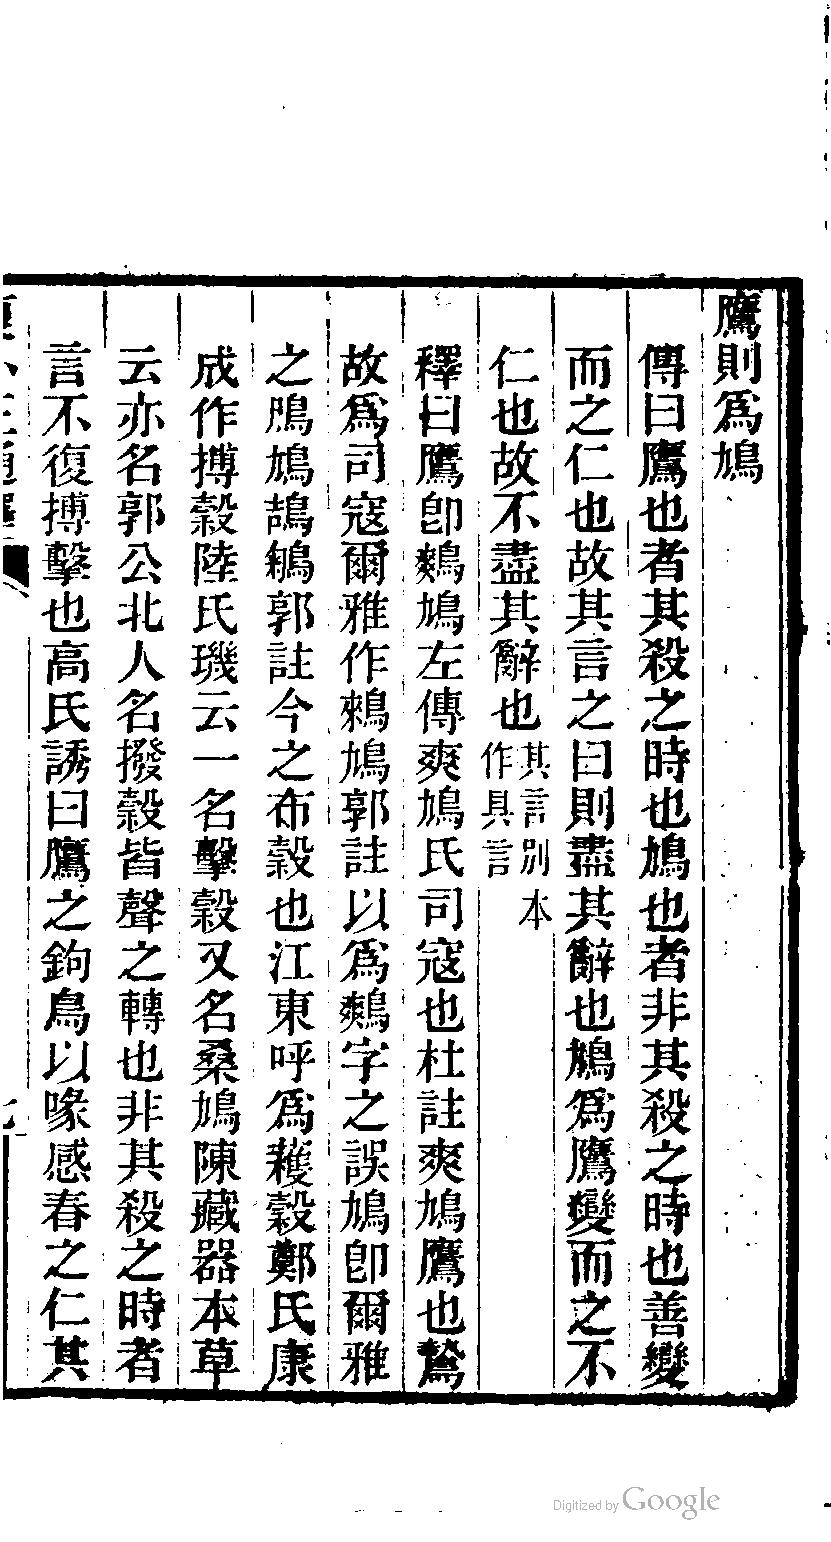 鷹則爲鳩
傳曰鷹也者其殺之時也鳩也者非其殺之時也善變
而之仁也故其言之曰則盡其辭也鳩爲鷹變而之不
仁也故不盡其辭也其言別本作具言
釋曰鷹卽鷞鳩左傳爽鳩氏司寇也杜註爽鳩鷹也鷙
故爲司寇爾雅作鶆鳩郭註以爲鷞字之誤鳩卽爾雅
之鳲鳩鴶鵴郭註今之布穀也江東呼爲穫穀鄭氏康
成作搏穀陸氏璣云一名擊穀又名桑鳩陳藏器本草
云亦名郭公北人名撥穀皆聲之轉也非其殺之時者
言不復搏擊也高氏誘曰鷹之鉤鳥以喙感春之仁其
Digitized by Google